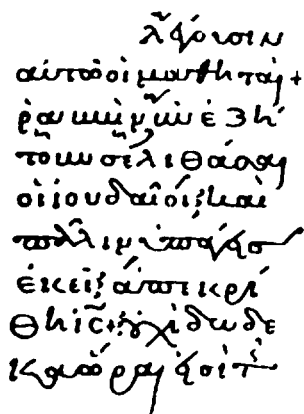 λέγουσιν
αυτῶ οἱ μαθηταί +
ῥαββὶ νῦν ἐζή
τουν σε λιθάσαι
οἱ ἰουδαῖοι· καὶ
πάλιν ὑπάγεις
ἐκεῖ; ἀπεκρί
θη ις̅ + οὐχὶ δώδε
κα ὧραι εἰσὶ τ